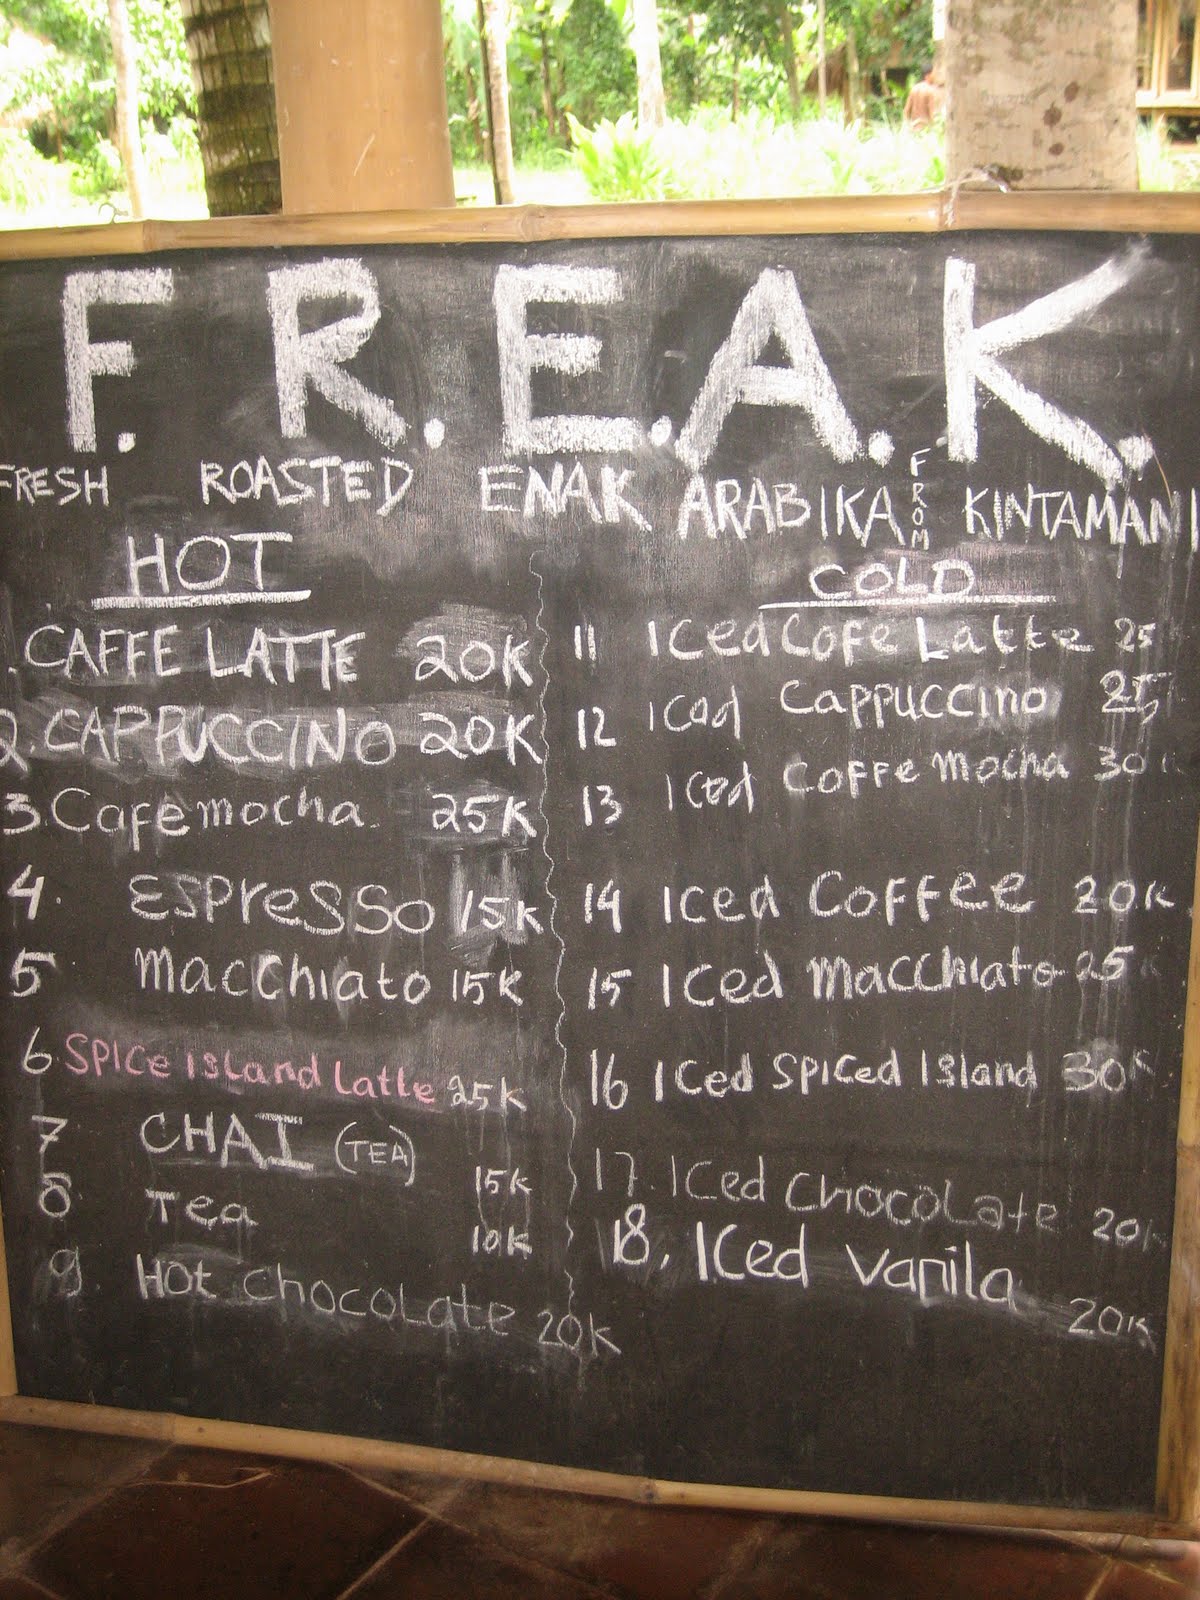 F.R.E.A.K.
FRESH ROASTED ENAK ARABIKA FROM KINTAMANI
HOT
. CAFFE LATTE 20K
2. CAPPUCCINO 20K
3. Cafe mocha. 25K
4. ESPresso 15K
5 Macchiato 15K
6 SPICE ISLand Latte 25K
7 CHAI (TEA) 15K
8 Tea 10K
9. Hot chocolate 20K
COLD
11 Iced Cofe Latte 25
12 Iced Cappuccino 25
13 Iced Coffe mocha 30
14 Iced Coffee 20K
15 Iced Macchiato 25
16 Iced Spiced Island 30K
17. Iced chocolate 20K
18. Iced Vanila 20K